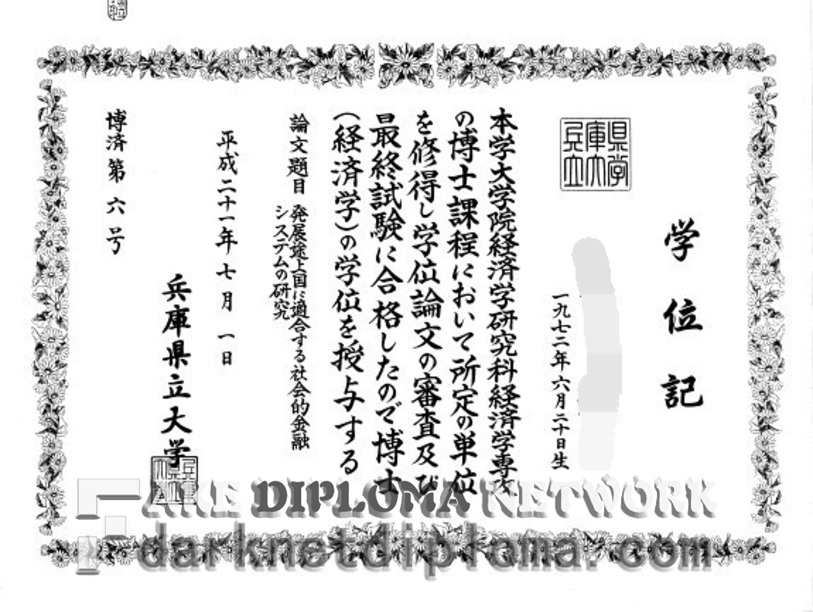 学位記
兵庫県立大学
一九七二年六月二十日生
本学大学院経済学研究科経済学専攻
の博士課程において所定の単位
を修得し学位論文の審査及び
最終試験に合格したので博士
(経済学)の学位を授与する
論文題目 発展途上国に適合する社会的金融
システムの研究
平成二十一年七月一日
兵庫県立大学
博済第六号
FAKE DIPLOMA NETWORK
darknetdiploma.com